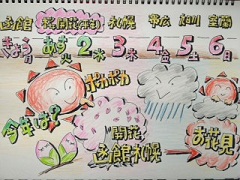 函館 桜開花(予想) 札幌 帯広 旭川 室蘭
きょう あす2 3 4 5 6
月 火 水 木 金 土 日
ポカポカ
今年は?
開花
函館 札幌
お花見